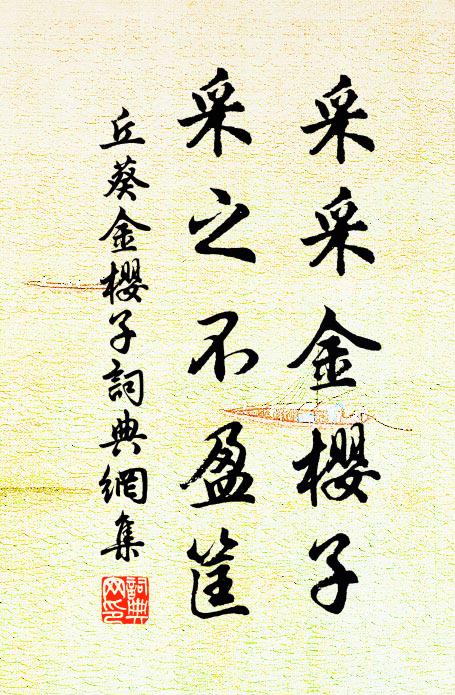 采采金櫻子
采之不盈筐
丘葵金櫻子詞典網集
詞典
网印